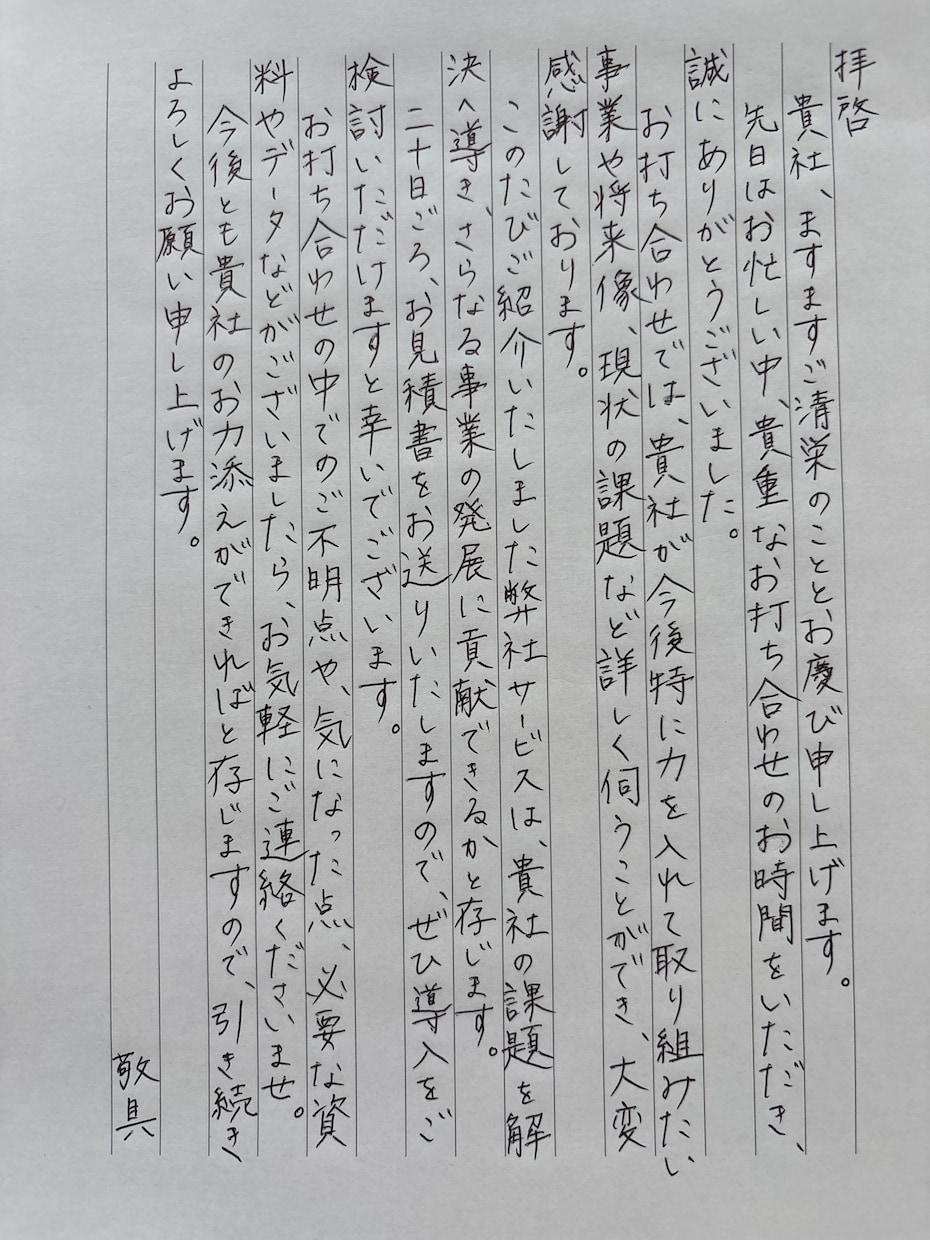 拝啓
貴社、ますますご清栄のこととお慶び申し上げます。
先日はお忙しい中、貴重なお打ち合わせのお時間をいただき、
誠にありがとうございました。
お打ち合わせでは、貴社が今後特に力を入れて取り組みたい
事業や将来像、現状の課題など詳しく伺うことができ、大変
感謝しております。
このたびご紹介いたしました弊社サービスは、貴社の課題を解
決へ導き、さらなる事業の発展に貢献できるかと存じます。
二十日ごろ、お見積書をお送りいたしますので、ぜひ導入をご
検討いただけますと幸いでございます。
お打ち合わせの中でのご不明点や、気になった点、必要な資
料やデータなどがございましたら、お気軽にご連絡くださいませ。
今後とも貴社のお力添えができればと存じますので、引き続き
よろしくお願い申し上げます。
敬具